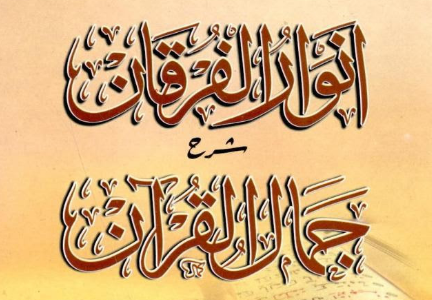 انوارُ الفُرقان
شرح
جمالُ القُرآن